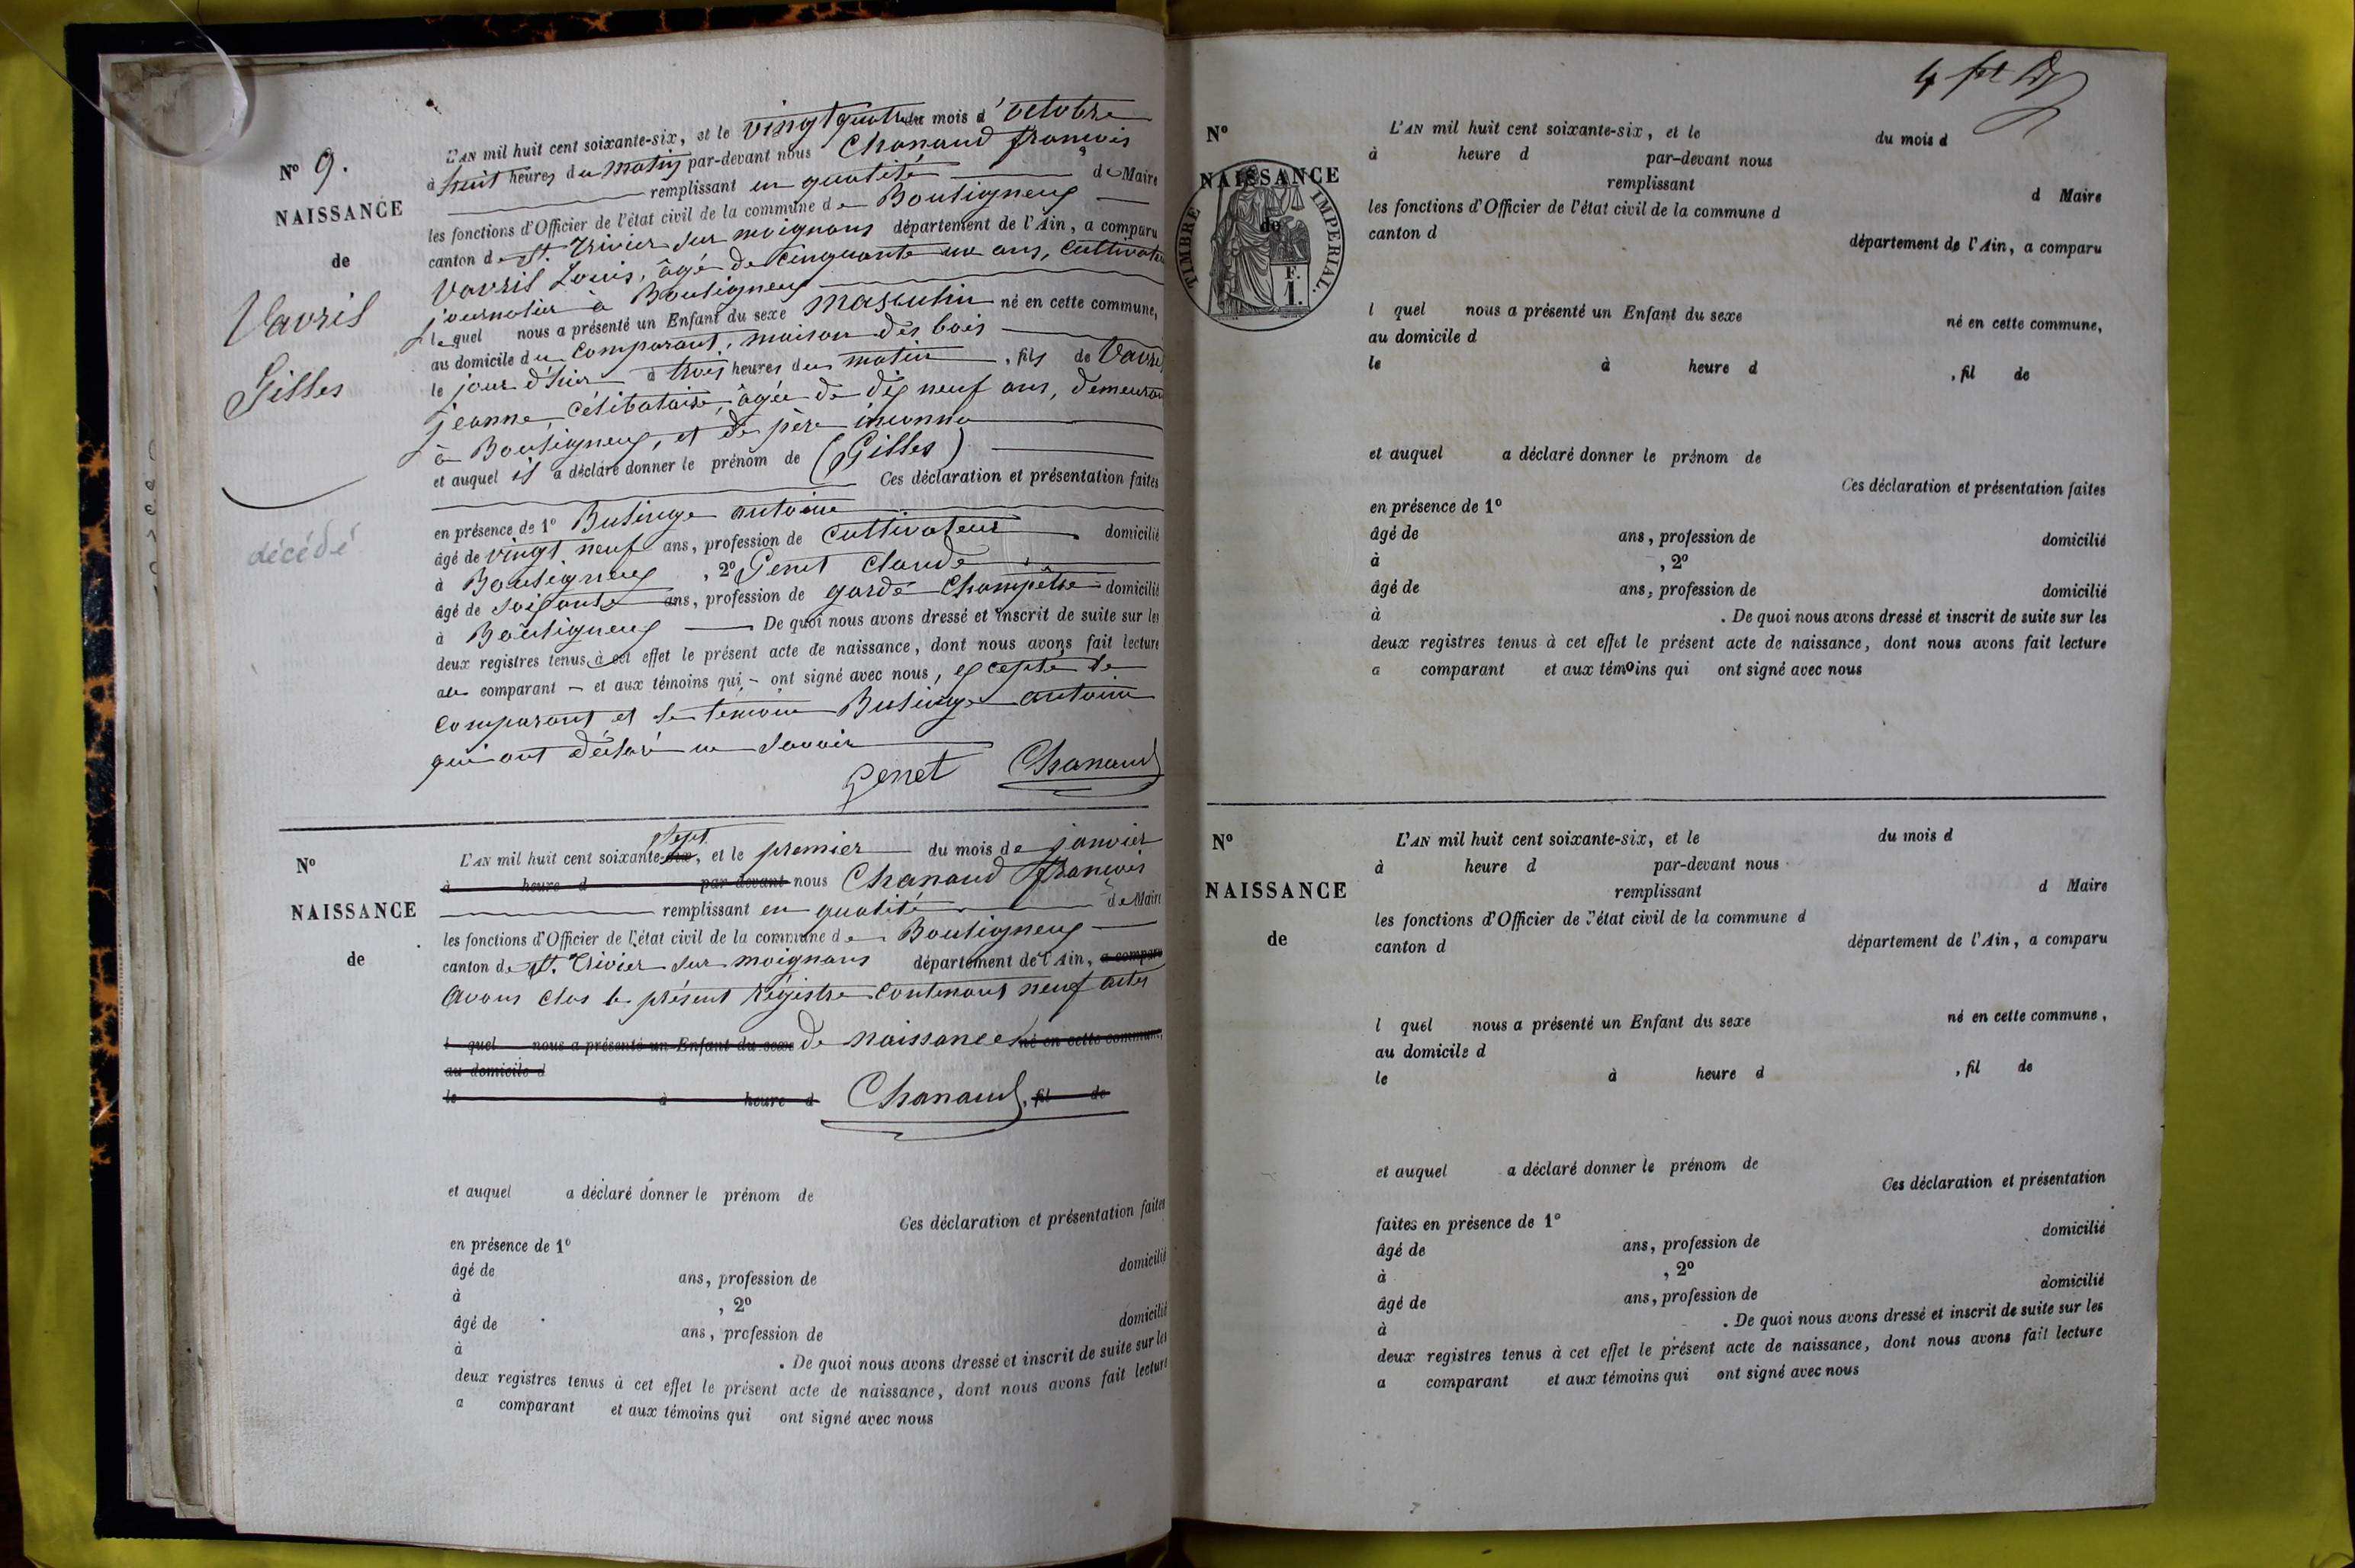 N° 9.
NAISSANCE
de
Vavril
Gilles
décédé
L'AN mil huit cent soixante-six, et le vingt quatre du mois d'octobre
à huit heures du matin par-devant nous Chanaud françois
remplissant en qualité de Maire
les fonctions d'Officier de l'état civil de la commune de Bouligneux
canton de St. Trivier sur moignans département de l'Ain, a comparu
Vavril Louis, âgé de cinquante un ans, cultivateur
journalier à Bouligneux
lequel nous a présenté un Enfant du sexe masculin né en cette commune,
au domicile du comparant, maison des bois
le jour d'hier à trois heures du matin, fils de Vavril
jeanne, célibataire, âgée de dix neuf ans, demeurant
à Bouligneux, et de père inconnu
et auquel il a déclaré donner le prénom de (Gilles)
Ces déclaration et présentation faites
en présence de 1° Butinge antoine
âgé de vingt neuf ans, profession de cultivateur domicilié
à Bouligneux, 2° Genet claude
âgé de soixante ans, profession de garde champêtre domicilié
à Bouligneux De quoi nous avons dressé et inscrit de suite sur les
deux registres tenus à cet effet le présent acte de naissance, dont nous avons fait lecture
au comparant et aux témoins qui ont signé avec nous, excepté le
comparant et le temoin Butinge antoine
qui ont déclaré ne savoir
Genet Chanaud
N°
NAISSANCE
de
L'AN mil huit cent soixante-six sept, et le premier du mois de janvier
à heure d par-devant nous Chanaud françois
remplissant en qualité de Maire
les fonctions d'Officier de l'état civil de la commune de Bouligneux
canton de St. Trivier sur moignans département de l'Ain, a comparu
avons clos le présent régistre contenant neuf actes
l quel nous a présenté un Enfant du sexe de naissances né en cette commune,
au domicile d
le à heure d Chanaud, fil de
et auquel a déclaré donner le prénom de
Ces déclaration et présentation faites
en présence de 1°
âgé de ans, profession de domicilié
à , 2°
âgé de ans, profession de domicilié
à . De quoi nous avons dressé et inscrit de suite sur les
deux registres tenus à cet effet le présent acte de naissance, dont nous avons fait lecture
a comparant et aux témoins qui ont signé avec nous
4
N°
NAISSANCE
de
TIMBRE IMPERIAL.
F.
1.
L'AN mil huit cent soixante-six, et le du mois d
à heure d par-devant nous
remplissant d Maire
les fonctions d'Officier de l'état civil de la commune d
canton d département de l'Ain, a comparu
l quel nous a présenté un Enfant du sexe né en cette commune,
au domicile d
le à heure d , fil de
et auquel a déclaré donner le prénom de
Ces déclaration et présentation faites
en présence de 1°
âgé de ans, profession de domicilié
à , 2°
âgé de ans, profession de domicilié
à . De quoi nous avons dressé et inscrit de suite sur les
deux registres tenus à cet effet le présent acte de naissance, dont nous avons fait lecture
a comparant et aux témoins qui ont signé avec nous
N°
NAISSANCE
de
L'AN mil huit cent soixante-six, et le du mois d
à heure d par-devant nous
remplissant d Maire
les fonctions d'Officier de l'état civil de la commune d
canton d département de l'Ain, a comparu
l quel nous a présenté un Enfant du sexe né en cette commune,
au domicile d
le à heure d , fil de
et auquel a déclaré donner le prénom de
Ces déclaration et présentation
faites en présence de 1°
âgé de ans, profession de domicilié
à , 2°
âgé de ans, profession de domicilié
à . De quoi nous avons dressé et inscrit de suite sur les
deux registres tenus à cet effet le présent acte de naissance, dont nous avons fait lecture
a comparant et aux témoins qui ont signé avec nous